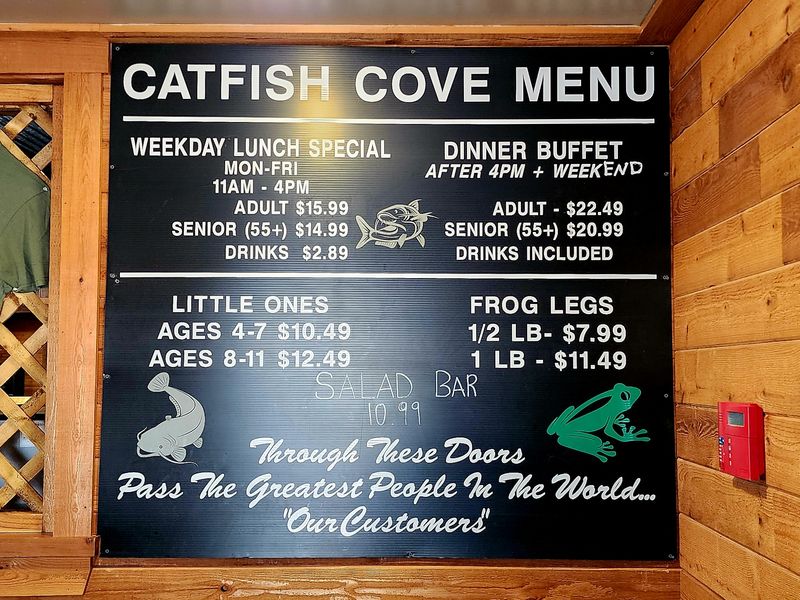 CATFISH COVE MENU
WEEKDAY LUNCH SPECIAL
MON-FRI
11AM - 4PM
ADULT $15.99
SENIOR (55+) $14.99
DRINKS $2.89
DINNER BUFFET
AFTER 4PM + WEEKEND
ADULT - $22.49
SENIOR (55+) $20.99
DRINKS INCLUDED
LITTLE ONES
AGES 4-7 $10.49
AGES 8-11 $12.49
FROG LEGS
1/2 LB- $7.99
1 LB - $11.49
SALAD BAR
10.99
Through These Doors
Pass The Greatest People In The World...
"Our Customers"